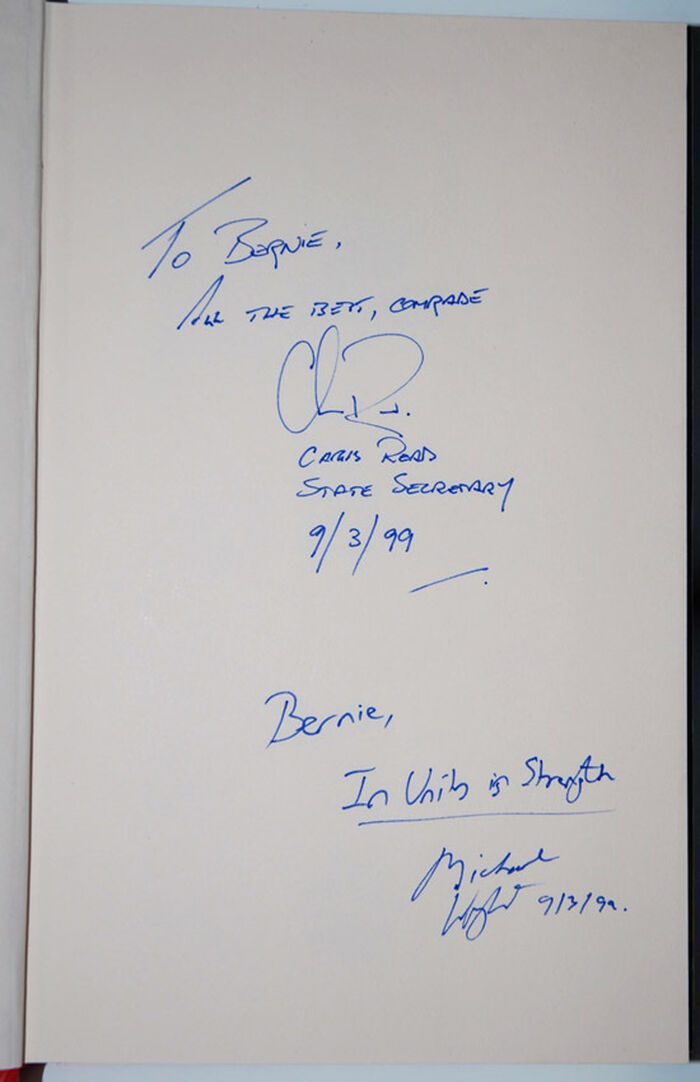 To Bernie,
All the best, comrade
Chris
State Secretary
9/3/99
Bernie,
In Unity is Strength
Michael
9/3/99.